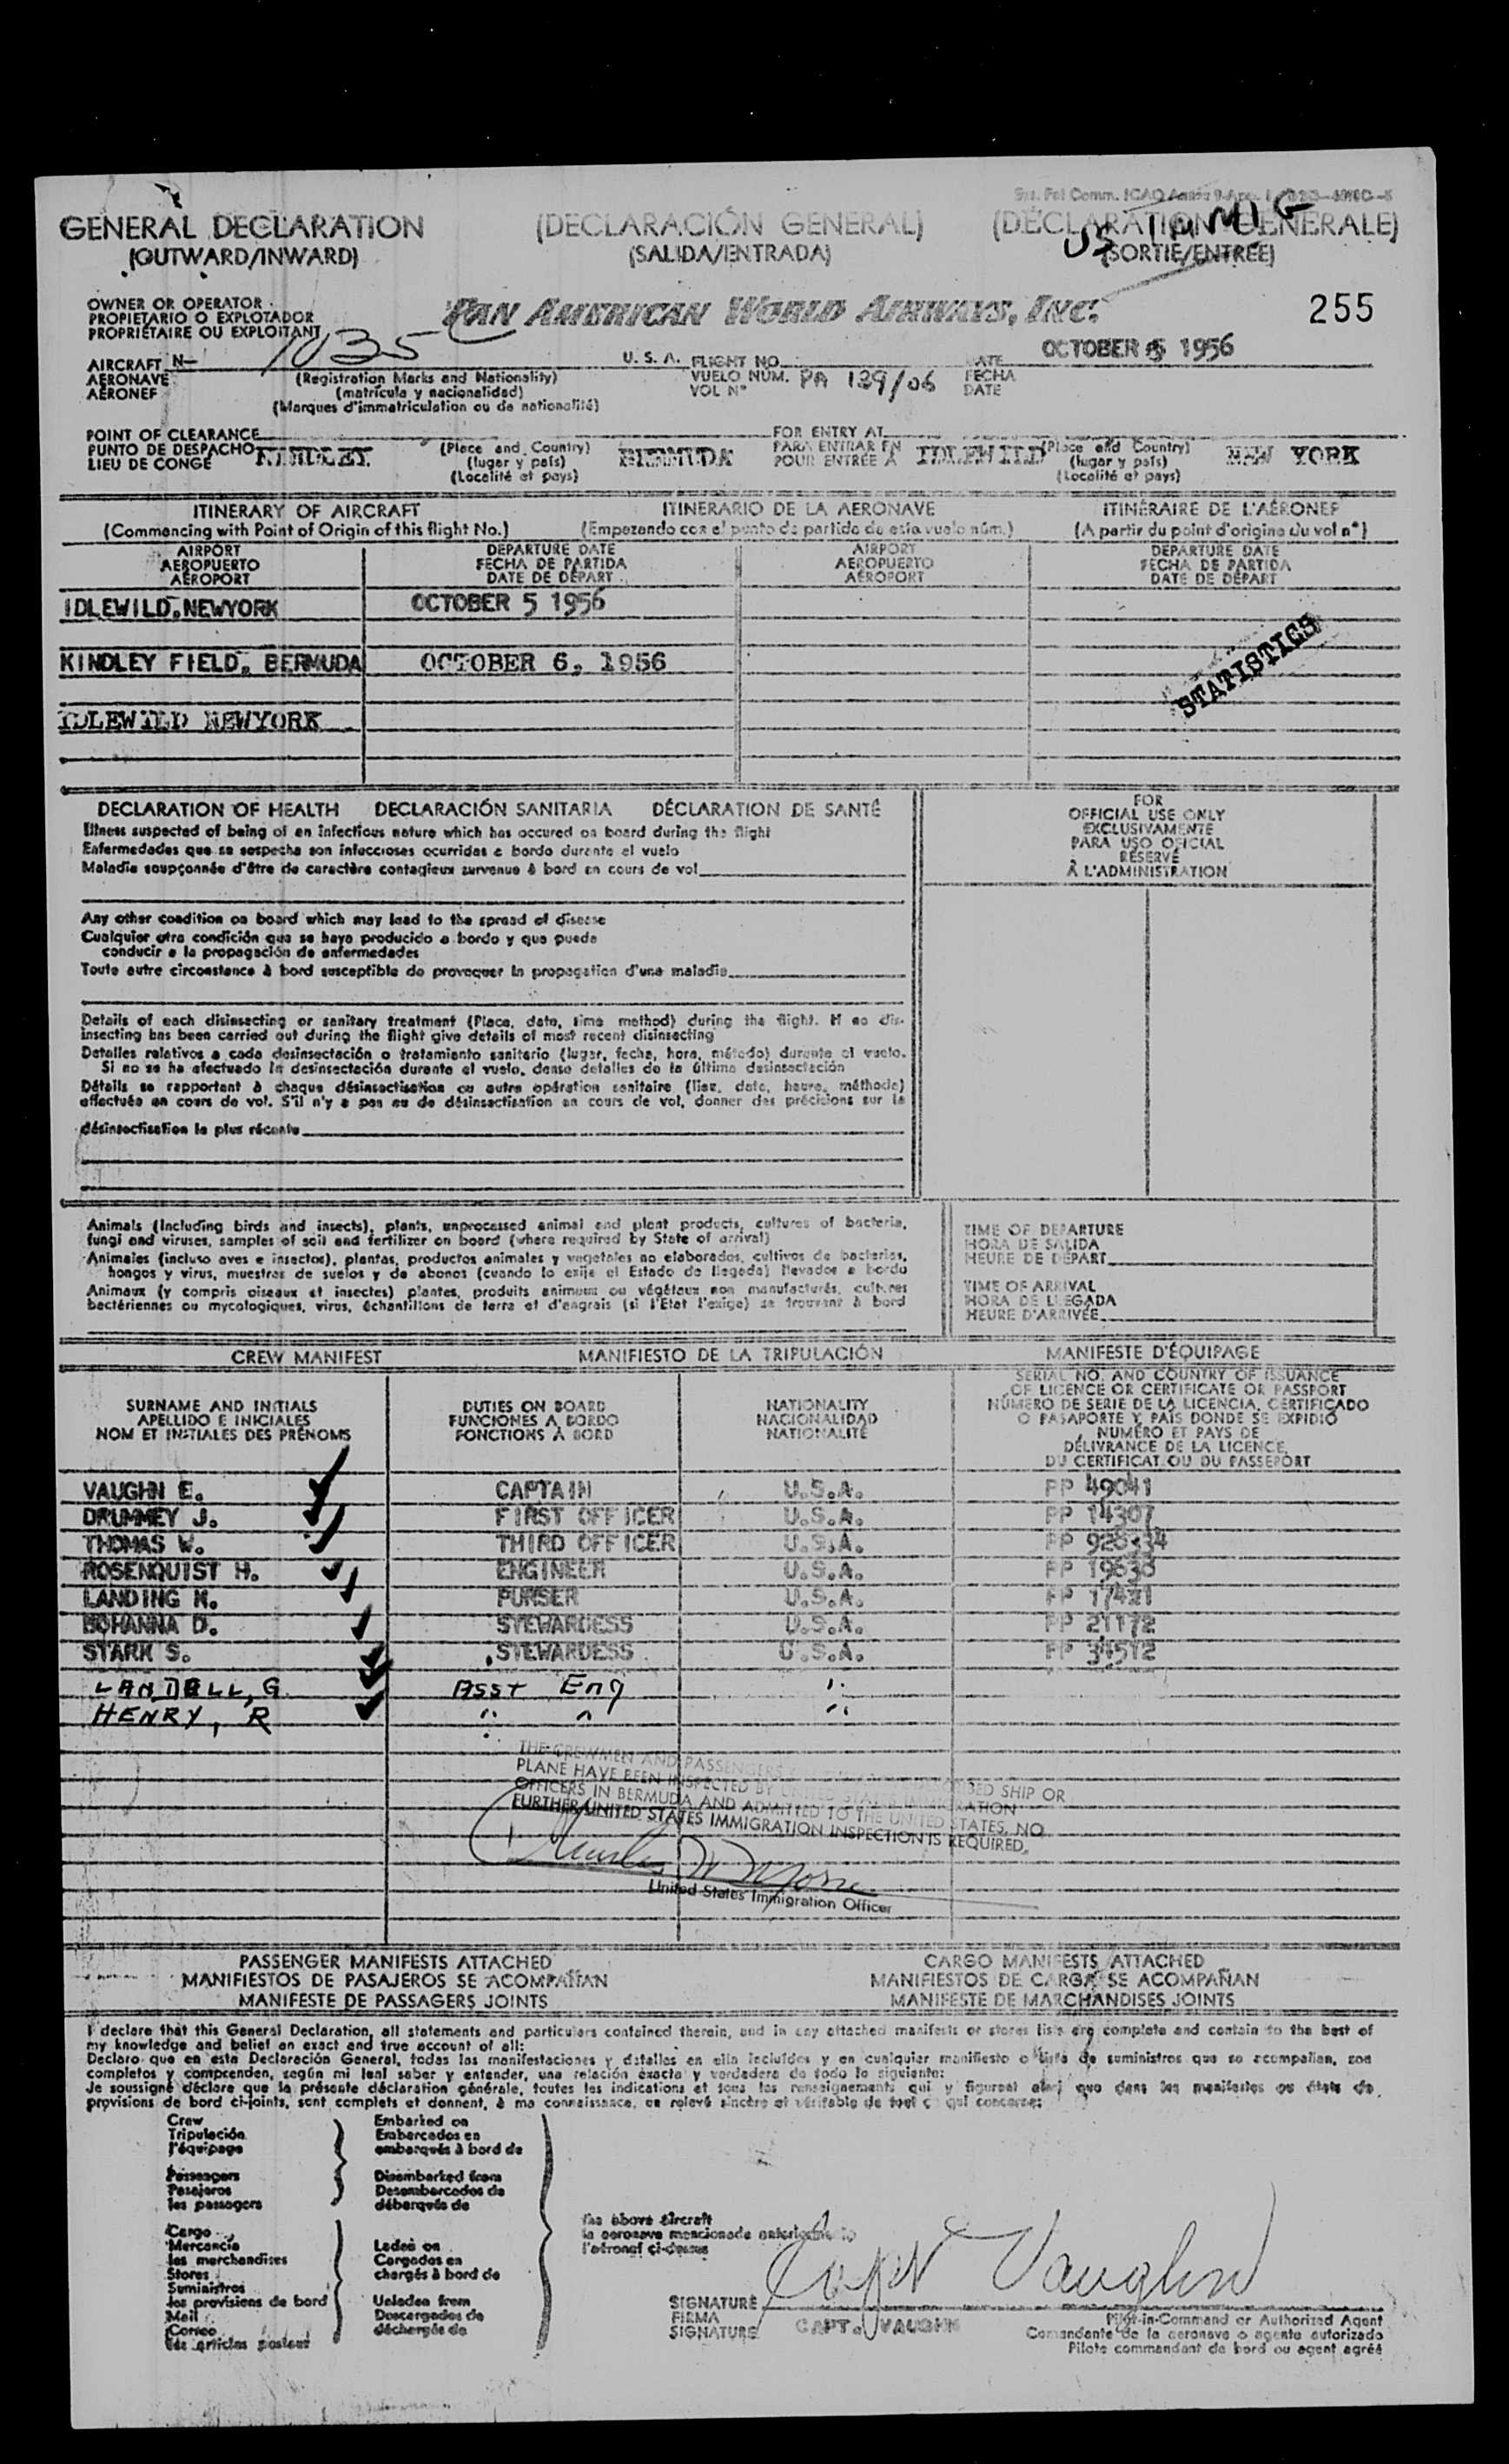 GENERAL DECLARATION (DECLARACIÓN GENERAL) (DÉCLARATION GENERALE)
US IMMIG
(OUTWARD/INWARD) (SALIDA/ENTRADA) (SORTIE/ENTRÉE)
OWNER OR OPERATOR
PROPIETARIO O EXPLOTADOR
PROPRIÉTAIRE OU EXPLOITANT
PAN AMERICAN WORLD AIRWAYS, INC. 255
AIRCRAFT N- 1035 U. S. A. FLIGHT NO. DATE OCTOBER 5 1956
AERONAVE (Registration Marks and Nationality) VUELO NÚM. PA 139/06 FECHA
AÉRONEF (matrícula y nacionalidad) VOL N° DATE
(Marques d'immatriculation ou de nationalité)
POINT OF CLEARANCE FOR ENTRY AT
PUNTO DE DESPACHO KINDLEY (Place and Country) BERMUDA PARA ENTRAR EN IDLEWILD (Place and Country) NEW YORK
LIEU DE CONGÉ (lugar y país) POUR ENTRÉE À (lugar y país)
(Localité et pays) (Localité et pays)
ITINERARY OF AIRCRAFT ITINERARIO DE LA AERONAVE ITINÉRAIRE DE L'AÉRONEF
(Commencing with Point of Origin of this flight No.) (Empezando con el punto de partida de este vuelo núm.) (A partir du point d'origine du vol n°)
AIRPORT DEPARTURE DATE AIRPORT DEPARTURE DATE
AEROPUERTO FECHA DE PARTIDA AEROPUERTO FECHA DE PARTIDA
AÉROPORT DATE DE DÉPART AÉROPORT DATE DE DÉPART
IDLEWILD, NEWYORK OCTOBER 5 1956
KINDLEY FIELD, BERMUDA OCTOBER 6, 1956
STATISTICS
IDLEWILD NEWYORK
DECLARATION OF HEALTH DECLARACIÓN SANITARIA DÉCLARATION DE SANTÉ
Illness suspected of being of an infectious nature which has occured on board during the flight
Enfermedades que se sospecha son infecciosas ocurridas a bordo durante el vuelo
Maladie soupçonnée d'être de caractère contagieux survenue à bord en cours de vol
FOR
OFFICIAL USE ONLY
EXCLUSIVAMENTE
PARA USO OFICIAL
RÉSERVÉ
À L'ADMINISTRATION
Any other condition on board which may lead to the spread of disease
Cualquier otra condición que se haya producido a bordo y que pueda
conducir a la propagación de enfermedades
Toute autre circonstance à bord susceptible de provoquer la propagation d'une maladie
Details of each disinsecting or sanitary treatment (Place, date, time method) during the flight. If no dis-
insecting has been carried out during the flight give details of most recent disinsecting
Detalles relativos a cada desinsectación o tratamiento sanitario (lugar, fecha, hora, método) durante el vuelo.
Si no se ha efectuado la desinsectación durante el vuelo, dense detalles de la última desinsectación
Détails se rapportant à chaque désinsectisation ou autre opération sanitaire (lieu, date, heure, méthode)
effectuée en cours de vol. S'il n'y a pas eu de désinsectisation en cours de vol, donner des précisions sur la
désinsectisation la plus récente
Animals (Including birds and insects), plants, unprocessed animal and plant products, cultures of bacteria,
fungi and viruses, samples of soil and fertilizer on board (where required by State of arrival)
Animales (incluso aves e insectos), plantas, productos animales y vegetales no elaborados, cultivos de bacterias,
hongos y virus, muestras de suelos y de abonos (cuando lo exije el Estado de llegada) llevados a bordo
Animaux (y compris oiseaux et insectes) plantes, produits animaux ou végétaux non manufacturés, cultures
bactériennes ou mycologiques, virus, échantillons de terre et d'engrais (si l'Etat l'exige) se trouvant à bord
TIME OF DEPARTURE
HORA DE SALIDA
HEURE DE DÉPART
TIME OF ARRIVAL
HORA DE LLEGADA
HEURE D'ARRIVÉE
CREW MANIFEST MANIFIESTO DE LA TRIPULACIÓN MANIFESTE D'ÉQUIPAGE
SURNAME AND INITIALS
APELLIDO E INICIALES
NOM ET INITIALES DES PRÉNOMS
DUTIES ON BOARD
FUNCIONES A BORDO
FONCTIONS À BORD
NATIONALITY
NACIONALIDAD
NATIONALITÉ
SERIAL NO. AND COUNTRY OF ISSUANCE
OF LICENCE OR CERTIFICATE OR PASSPORT
NÚMERO DE SERIE DE LA LICENCIA, CERTIFICADO
O PASAPORTE Y PAÍS DONDE SE EXPIDIÓ
NUMÉRO ET PAYS DE
DÉLIVRANCE DE LA LICENCE,
DU CERTIFICAT OU DU PASSEPORT
VAUGHN E. CAPTAIN U.S.A. PP 49041
DRUMMEY J. FIRST OFFICER U.S.A. PP 14307
THOMAS W. THIRD OFFICER U.S.A. PP
ROSENQUIST H. ENGINEER U.S.A. PP 19638
LANDING N. PURSER U.S.A. PP 17421
BOHANNA D. STEWARDESS U.S.A. PP 21172
STARK S. STEWARDESS U.S.A. PP 34512
LANDELL, G. ASST Eng "
HENRY, R " " "
THE CREWMEN AND PASSENGERS SHIP OR
PLANE HAVE BEEN INSPECTED BY UNITED STATES IMMIGRATION
OFFICERS IN BERMUDA AND ADMITTED TO THE UNITED STATES, NO
FURTHER UNITED STATES IMMIGRATION INSPECTION IS REQUIRED.
Charles W
United States Immigration Officer
PASSENGER MANIFESTS ATTACHED CARGO MANIFESTS ATTACHED
MANIFIESTOS DE PASAJEROS SE ACOMPAÑAN MANIFIESTOS DE CARGA SE ACOMPAÑAN
MANIFESTE DE PASSAGERS JOINTS MANIFESTE DE MARCHANDISES JOINTS
I declare that this General Declaration, all statements and particulars contained therein, and in any attached manifests or stores lists are complete and contain to the best of
my knowledge and belief an exact and true account of all:
Declaro que en esta Declaración General, todas las manifestaciones y detalles en ella incluídos y en cualquier manifiesto o lista de suministros que se acompañan, son
completos y comprenden, según mi leal saber y entender, una relación exacta y verdadera de todo lo siguiente:
Je soussigné déclare que la présente déclaration générale, toutes les indications et tous les renseignements qui y figurent ainsi que dans les manifestes ou états de
provisions de bord ci-joints, sont complets et donnent, à ma connaissance, un relevé sincère et véritable de tout ce qui concerne:
Crew Embarked on
Tripulación Embarcados en
l'équipage embarqués à bord de
Passengers Disembarked from
Pasajeros Desembarcados de
les passagers débarqués de
Cargo
Mercancía Laden on
les marchandises Cargados en
Stores chargés à bord de
Suministros
les provisions de bord Unladen from
Mail Descargados de
Correo déchargés de
les articles postaux
the above aircraft
la aeronave mencionada anteriormente
l'aéronef ci-dessus
Capt Vaughn
SIGNATURE
FIRMA CAPT. VAUGHN
SIGNATURE
Pilot-in-Command or Authorized Agent
Comandante de la aeronave o agente autorizado
Pilote commandant de bord ou agent agréé